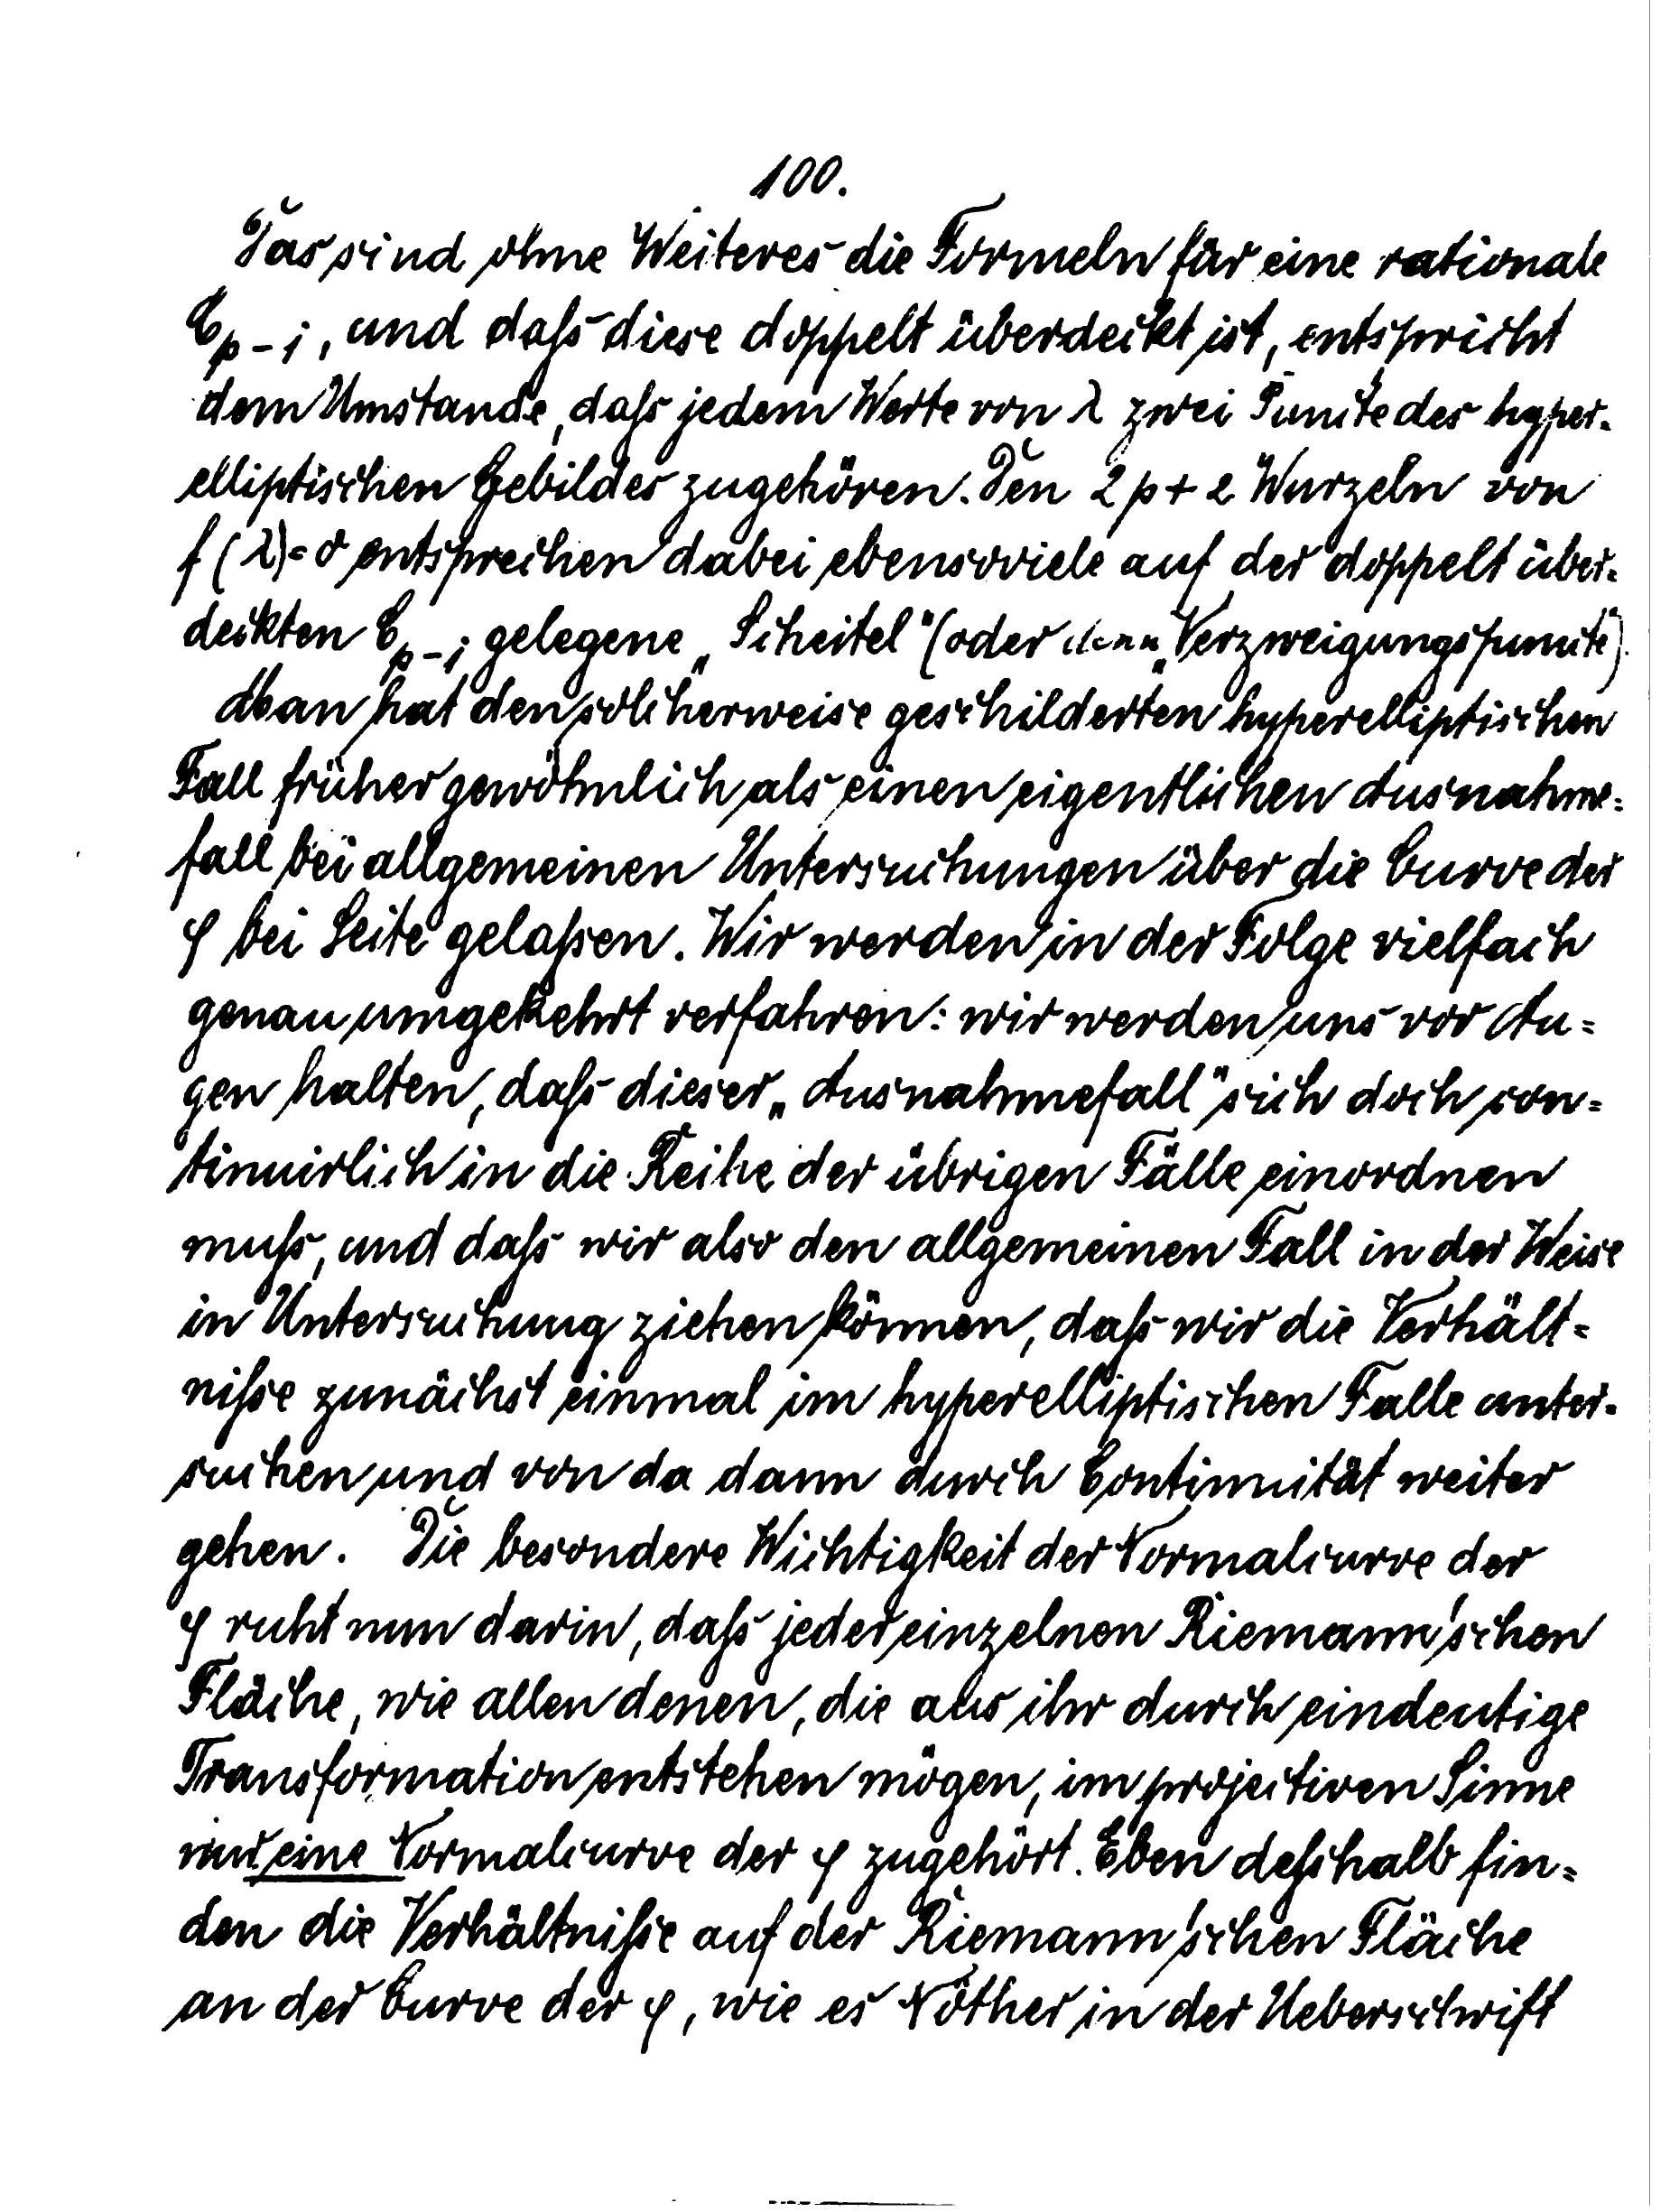 100.
Das sind ohne Weiteres die Formeln für eine rationale
C_{p-1}, und daß diese doppelt überdeckt ist, entspricht
dem Umstande, daß jedem Werte von λ zwei Puncte des hyper-
elliptischen Gebildes zugehören. Den 2p+2 Wurzeln von
f(λ)=0 entsprechen dabei ebensoviele auf der doppelt über-
deckten C_{p-1} gelegene „Scheitel" (oder „Verzweigungspuncte").
Man hat den solcherweise geschilderten hyperelliptischen
Fall früher gewöhnlich als einen eigentlichen Ausnahme-
fall bei allgemeinen Untersuchungen über die Curve der
φ bei Seite gelaßen. Wir werden in der Folge vielfach
genau umgekehrt verfahren: wir werden uns vor Au-
gen halten, daß dieser „Ausnahmefall" sich doch con-
tinuirlich in die Reihe der übrigen Fälle einordnen
muß, und daß wir also den allgemeinen Fall in der Weise
in Untersuchung ziehen können, daß wir die Verhält-
niße zunächst einmal im hyperelliptischen Falle unter-
suchen und von da dann durch Continuität weiter
gehen. Die besondere Wichtigkeit der Normalcurve der
φ ruht nun darin, daß jeder einzelnen Riemann'schen
Fläche, wie allen denen, die aus ihr durch eindeutige
Transformation entstehen mögen, im projectiven Sinne
nur eine Normalcurve der φ zugehört. Eben deßhalb fin-
den die Verhältniße auf der Riemann'schen Fläche
an der Curve der φ, wie es Nöther in der Ueberschrift